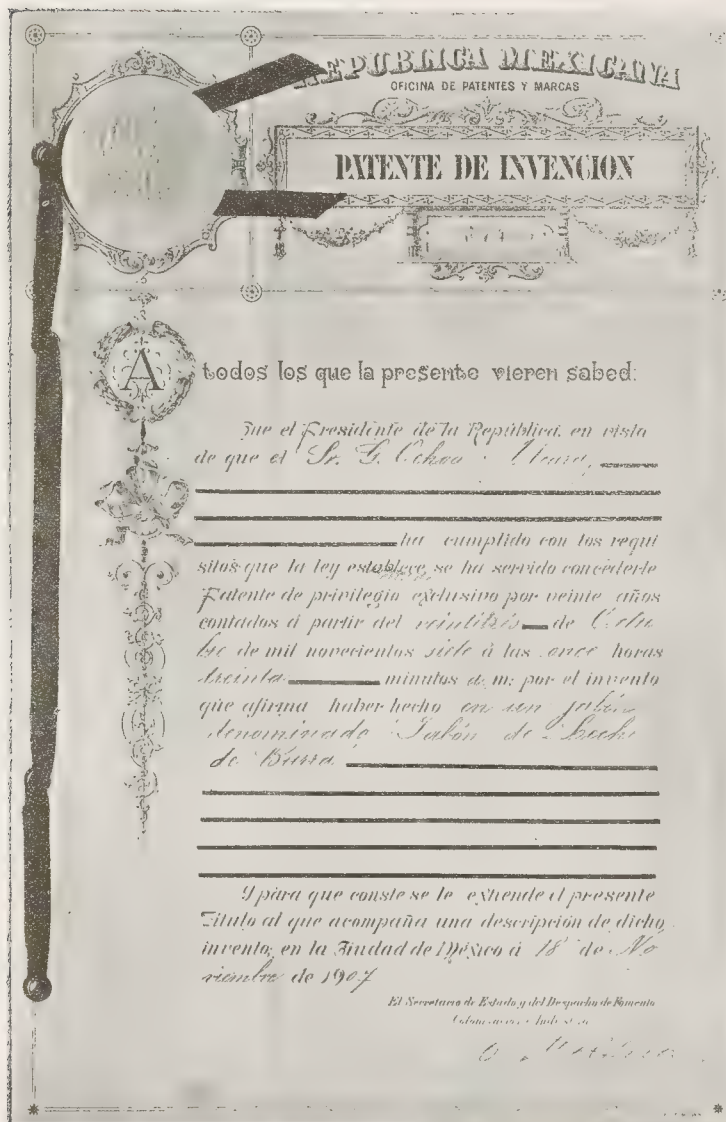 REPUBLICA MEXICANA
OFICINA DE PATENTES Y MARCAS
PATENTE DE INVENCION
A todos los que la presente vieren sabed:
Que el Presidente de la República, en vista
de que el Sr. G. Ochoa
ha cumplido con los requi
sitos que la ley establece, se ha servido concederle
Patente de privilegio exclusivo por veinte años
contados á partir del veintitrés de Octu
bre de mil novecientos siete á las once horas
treinta minutos a.m; por el invento
que afirma haber hecho en un jabón
denominado "Jabón de Leche
de Burra
Y para que conste se le extiende el presente
Título al que acompaña una descripción de dicho
invento, en la Ciudad de México á 18 de No
viembre de 1907
El Secretario de Estado y del Despacho de Fomento
Colonización é Industria